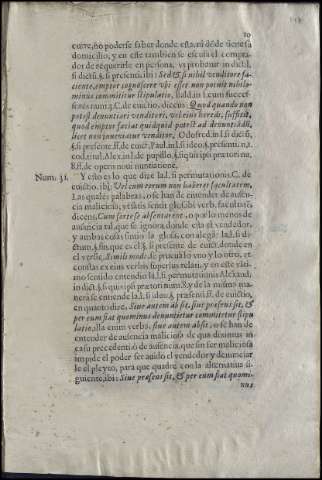 10
curre, no poderse saber donde esta, ni dõde tiene su
domicilio, y en este tambien se escusa el compra-
dor de requerirle en persona, vt probatur in dict.l.
si dictũ. §. si præsenti, ibi: Sed & si nihil venditore fa-
ciente, emptor cognoscere vbi esset non potuit nihilo-
minus committitur stipulatio, Bald. in l. cum succes-
sores num. 3. C. de euictio. dicens: Quod quando non
potest denuntiari venditori, vel eius heredi, sufficit,
quod emptor faciat quidquid potest ad denuntiandũ,
licet non inueniatur venditor,
Num. 31. Y esto es lo que dize la l. si permutationis. C. de
euictio. ibi: Vel cum eorum non haberes facultatem,
Las quales palabras, o se han de entender de ausen-
cia maliciosa,
dicens, Cum forte se absentarent, o por lo menos de
ausencia tal, que se ignora donde esta el vendedor,
y ambas cosas sintio la glossa, con alegar la l. si di-
ctum. §. fin. que es el §. si præsente de euict. donde en
el versic. & simili modo se prueua lo vno y lo otro, vt
constat ex eius verbis superius relatis, y en este vlti-
mo sentido entendio la l. si permutationis Alexand.
y de la misma ma-
nera se entiende la l. si ideo, §. præsenti ff. de euictio,
en quanto dize, Siue autem absit, siue præsens sit, &
per eum fiat quominus denuntietur committetur stipu-
latio, illa enim verba, siue autem absit, o se han de
entender de ausencia maliciosa de qua diximus in
casu precedenti o de ausencia, que sin ser maliciosa
impide el poder ser auido el vendedor y denunciar
le el pleyto, para que quadre con la alternatiua si-
guiente, ibi: Siue præsens sit, & per eum fiat quomi-
nus